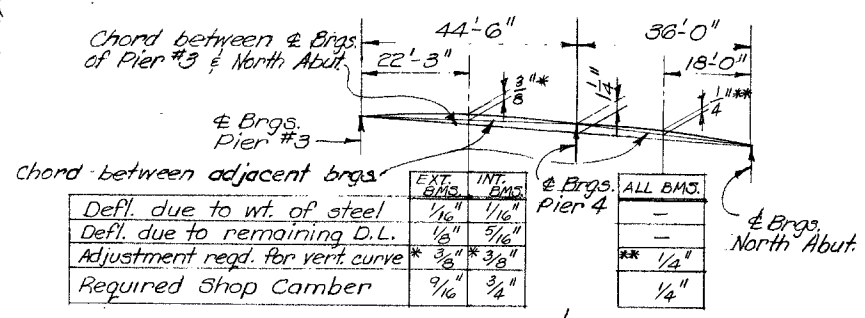 44'-6"
36'-0"
Chord between ℄ Brgs.
of Pier #3 & North Abut.
22'-3"
18'-0"
3/8"*
1 1/4"
1/4"**
℄ Brgs.
Pier #3
Chord between adjacent brgs.
℄ Brgs.
Pier 4
℄ Brgs.
North Abut.
EXT. BMS. INT. BMS. ALL BMS.
Defl. due to wt. of steel 1/16" 1/16" —
Defl. due to remaining D.L. 1/8" 5/16" —
Adjustment reqd. for vert. curve * 3/8" * 3/8" ** 1/4"
Required Shop Camber 9/16" 3/4" 1/4"